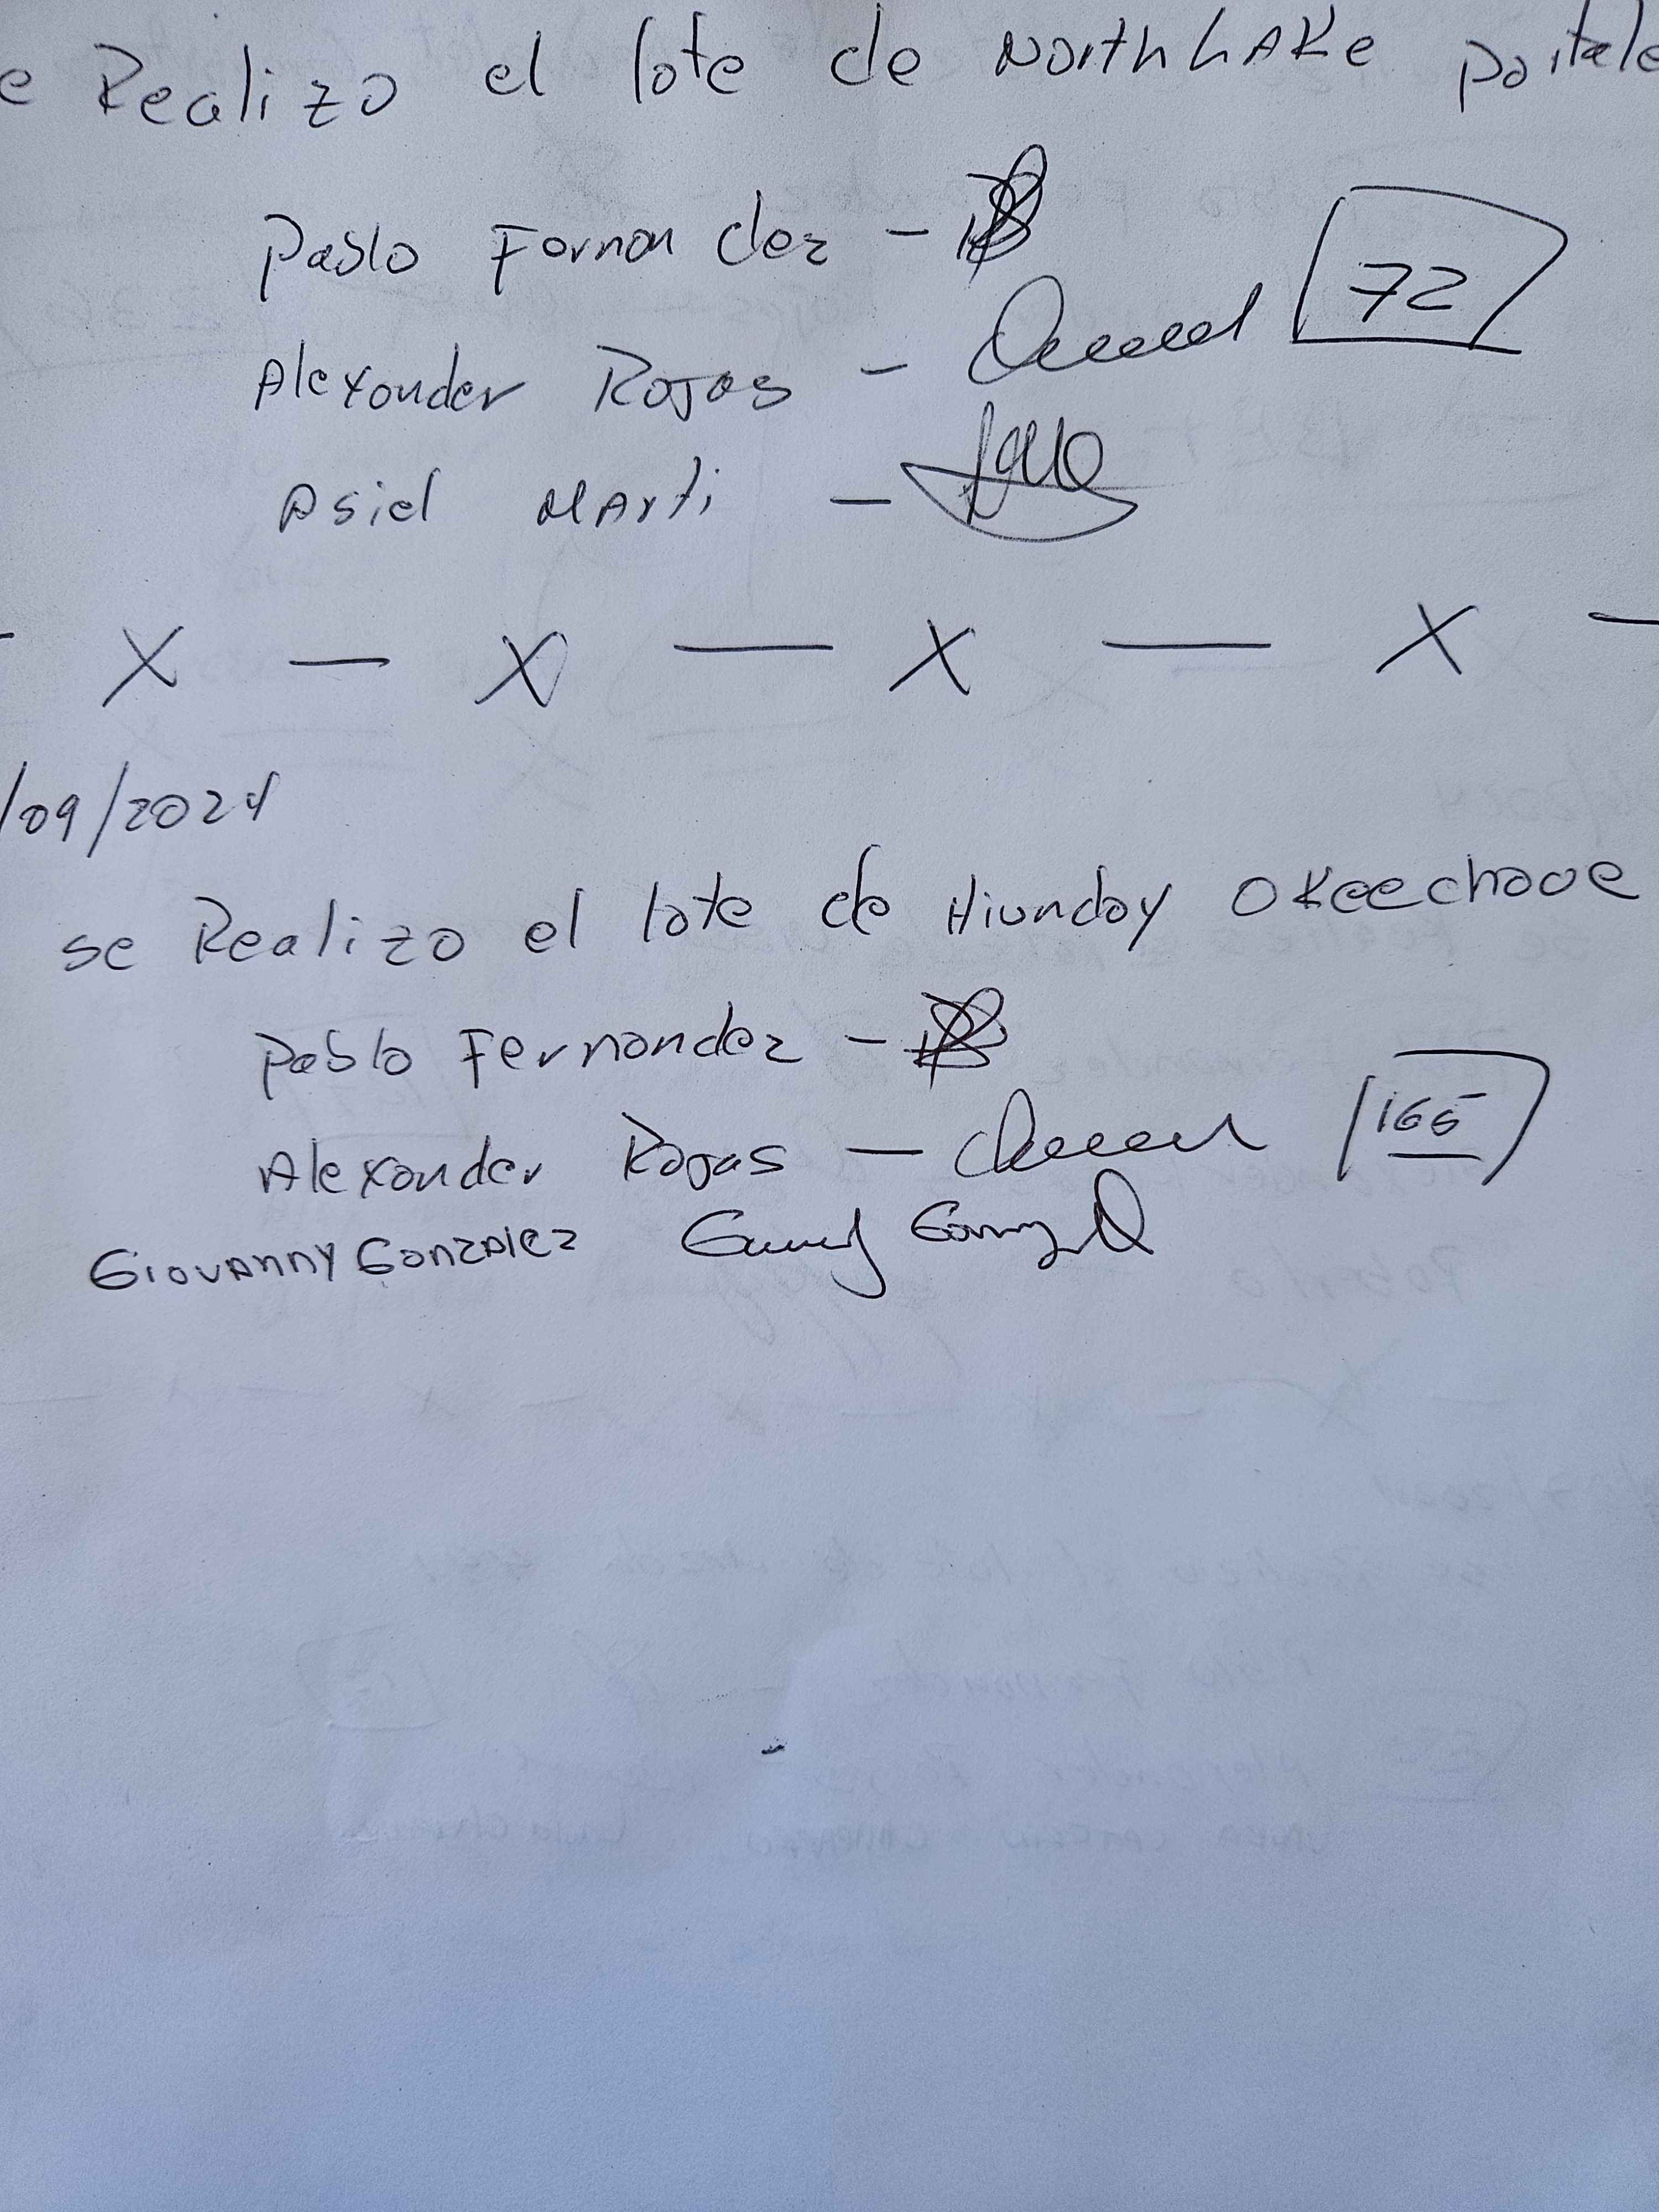 e Realizo el lote de NorthLAKe
Pablo Fernandez -
72
Alexander Rojas -
Asiel MArti -
X - X - X - X -
/09/2024
se Realizo el lote de Hiunday OKeechove
Pablo Fernandez -
Alexander Rojas -
165
Giovanny Gonzalez